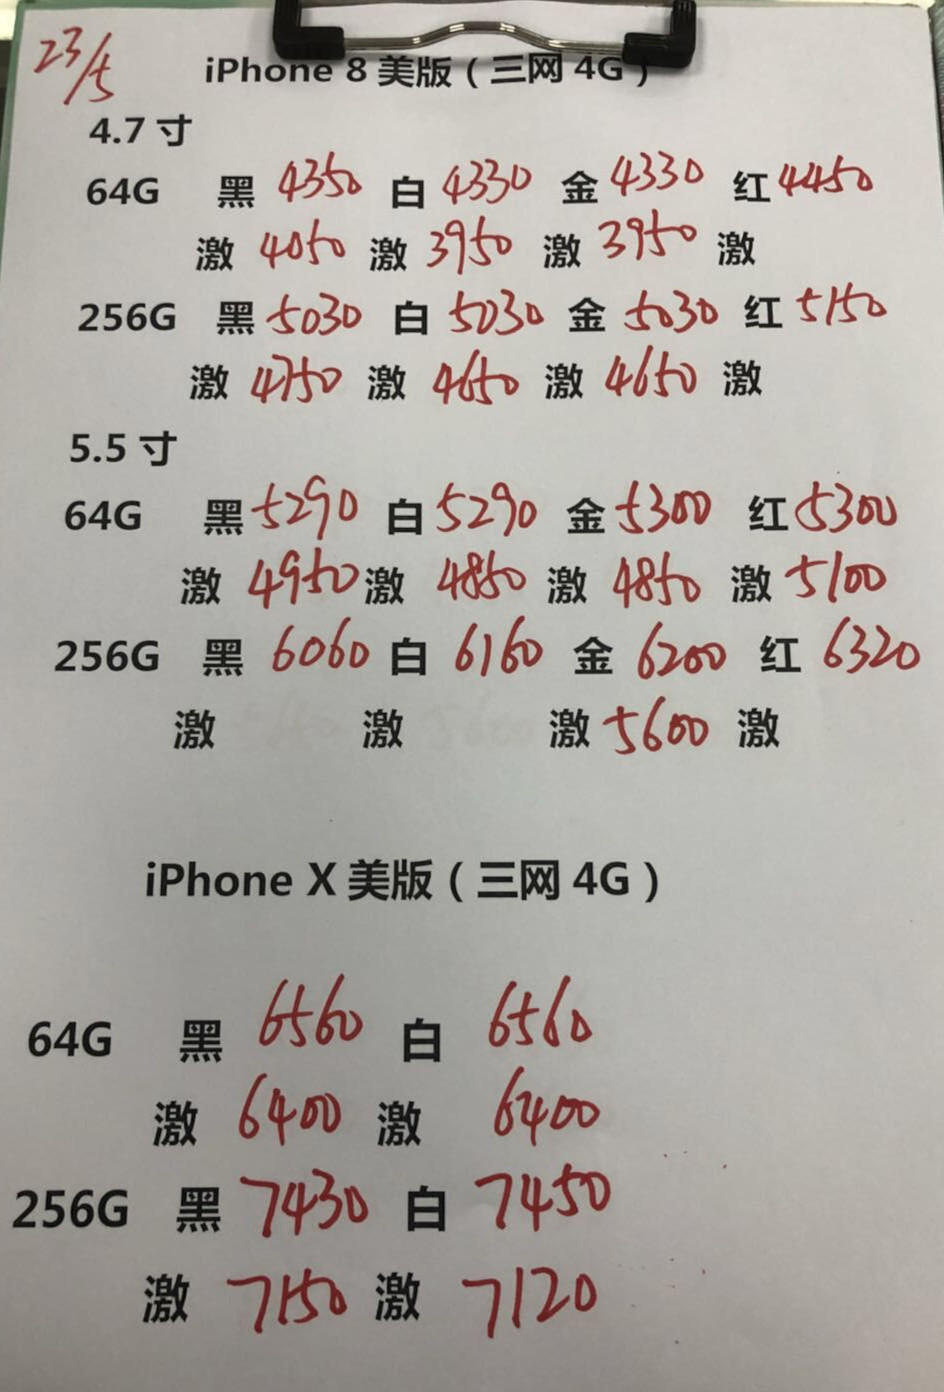 23/5
iPhone 8 美版（三网 4G）
4.7 寸
64G 黑 4350 白 4330 金 4330 红 4450
激 4050 激 3950 激 3950 激
256G 黑 5030 白 5030 金 5030 红 5150
激 4750 激 4650 激 4650 激
5.5 寸
64G 黑 5290 白 5290 金 5300 红 5300
激 4950 激 4850 激 4850 激 5100
256G 黑 6060 白 6160 金 6200 红 6320
激 激 激 5600 激
iPhone X 美版（三网 4G）
64G 黑 6560 白 6560
激 6400 激 6400
256G 黑 7430 白 7450
激 7150 激 7120